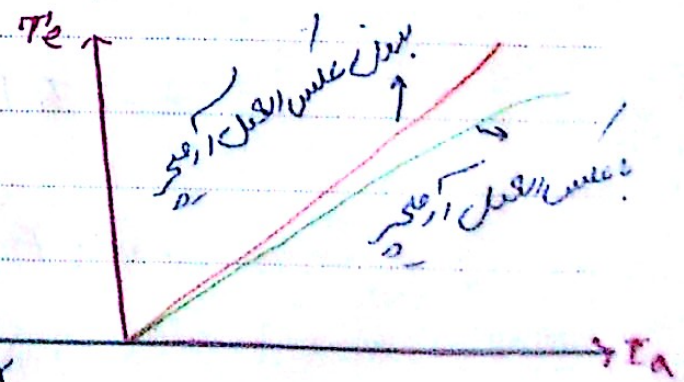 Te
بدون عکس العمل آرمیچر
با عکس العمل آرمیچر
Ia